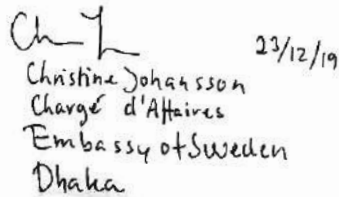 23/12/19
Christine Johansson
Chargé d'Affaires
Embassy of Sweden
Dhaka